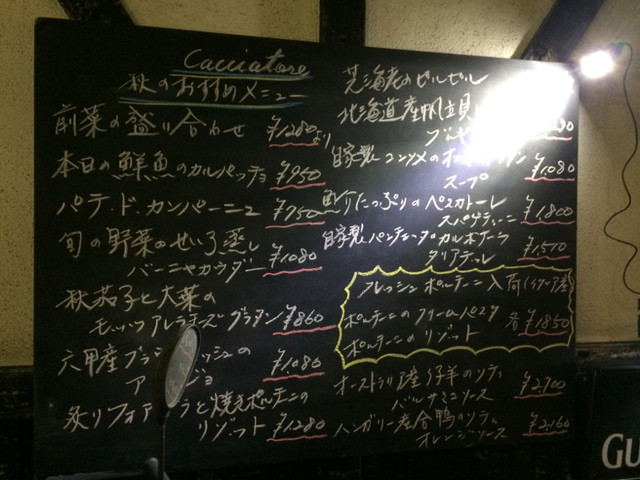 Cacciatore
秋のおすすめメニュー
前菜の盛り合わせ ¥1280より
本日の鮮魚のカルパッチョ ¥950
パテ・ド・カンパーニュ ¥750
旬の野菜のせいろ蒸し
バーニャカウダー ¥1080
秋茄子と大葉の
モッツァレラチーズグラタン ¥860
六甲産ブラ ッシュの
ア ジョ ¥1080
炙りフォアグラと焼きポルチーニの
リゾット ¥1280
芝海老のピルピル
北海道産帆立貝
ブルギ
自家製コンソメのオ
スープ ¥1080
たっぷりのペスカトーレ
スパゲティーニ ¥1800
自家製パンチェッタのカルボナーラ
タリアテッレ ¥1510
フレッシュポルチーニ入荷(イタリア産)
ポルチーニのクリームパスタ
ポルチーニのリゾット 各¥1850
オーストラリア産仔羊のソテー
バルサミコソース ¥2700
ハンガリー産合鴨のソテー
オレンジソース ¥2160
GU